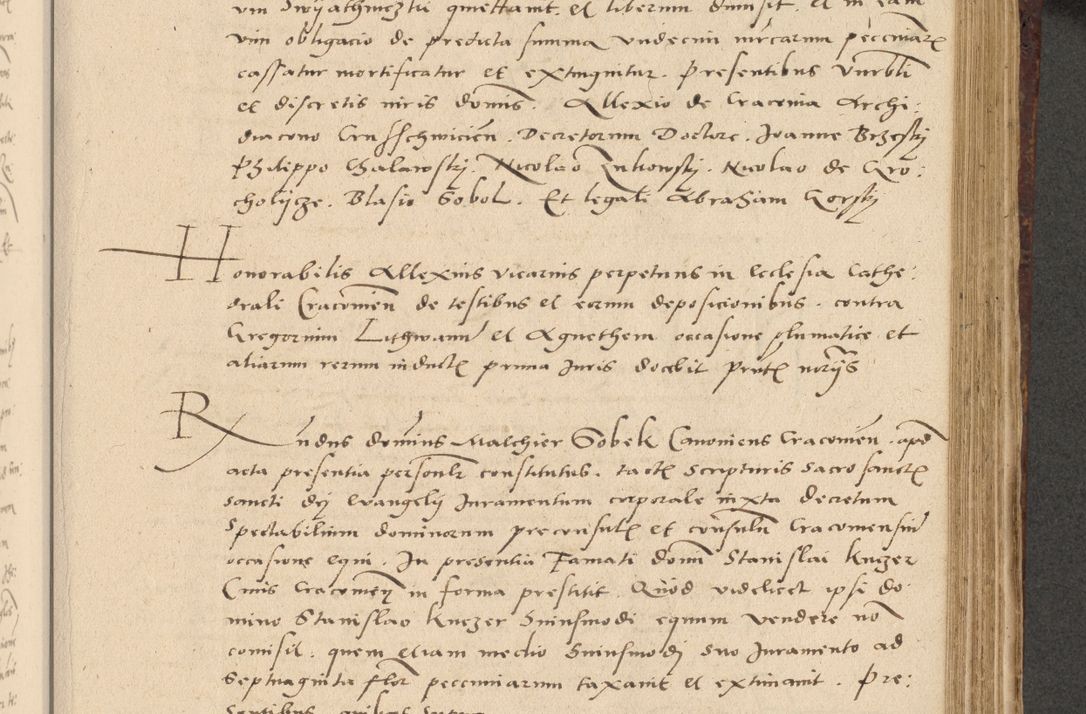 vim Swyathniczkii quittavit. et liberum dimisit. et in eam
vim obligacio de predicta summa undecim mrcarum pecuniarz
cassatur mortificatur et extinguitur. Presentibus Vnrbli
et discretis viris domis. Allexio de Cracovia Archi:
diacono Decretorum Doctore. Joanne Brzeskj
Philippo Chalawskj. Nicolao Zukowskj. Nicolao de Gro:
cholijcze. Blasio Sobol. Et legali Abraham Gorskj
Honorabilis Allexius vicarius perpetuus in Ecclesia Cathe:
drali Cracovien de testibus et eorum deposicionibus. contra
Gregorium Lithwanū et Agnethem occasione plumatice et
aliarum rerum inducte prima Juris docebit
Rndus dominus Malchier Sobek Canonicus Cracovien. apd
acta presentia personlr constitutus. tactz scripturis sacro sanctz
sancti dej Evangelij Juramentum corporale iuxta decretum
Spectabilium dominorum preconsulz et consulū Cracoviensiū
occasione equi. In presentia Famati domī Stanislai Kuczer
Civis Cracovien in forma prestitit. Quod videlicet ipsi do
mino Stanislao Kuczer huiusmodi equum vendere nō
comisit. quem etiam medio huiusmodj suo Juramento ad
Septuaginta flor pecuniarum taxavit et extimavit. Pre:
sentibus quibus supra